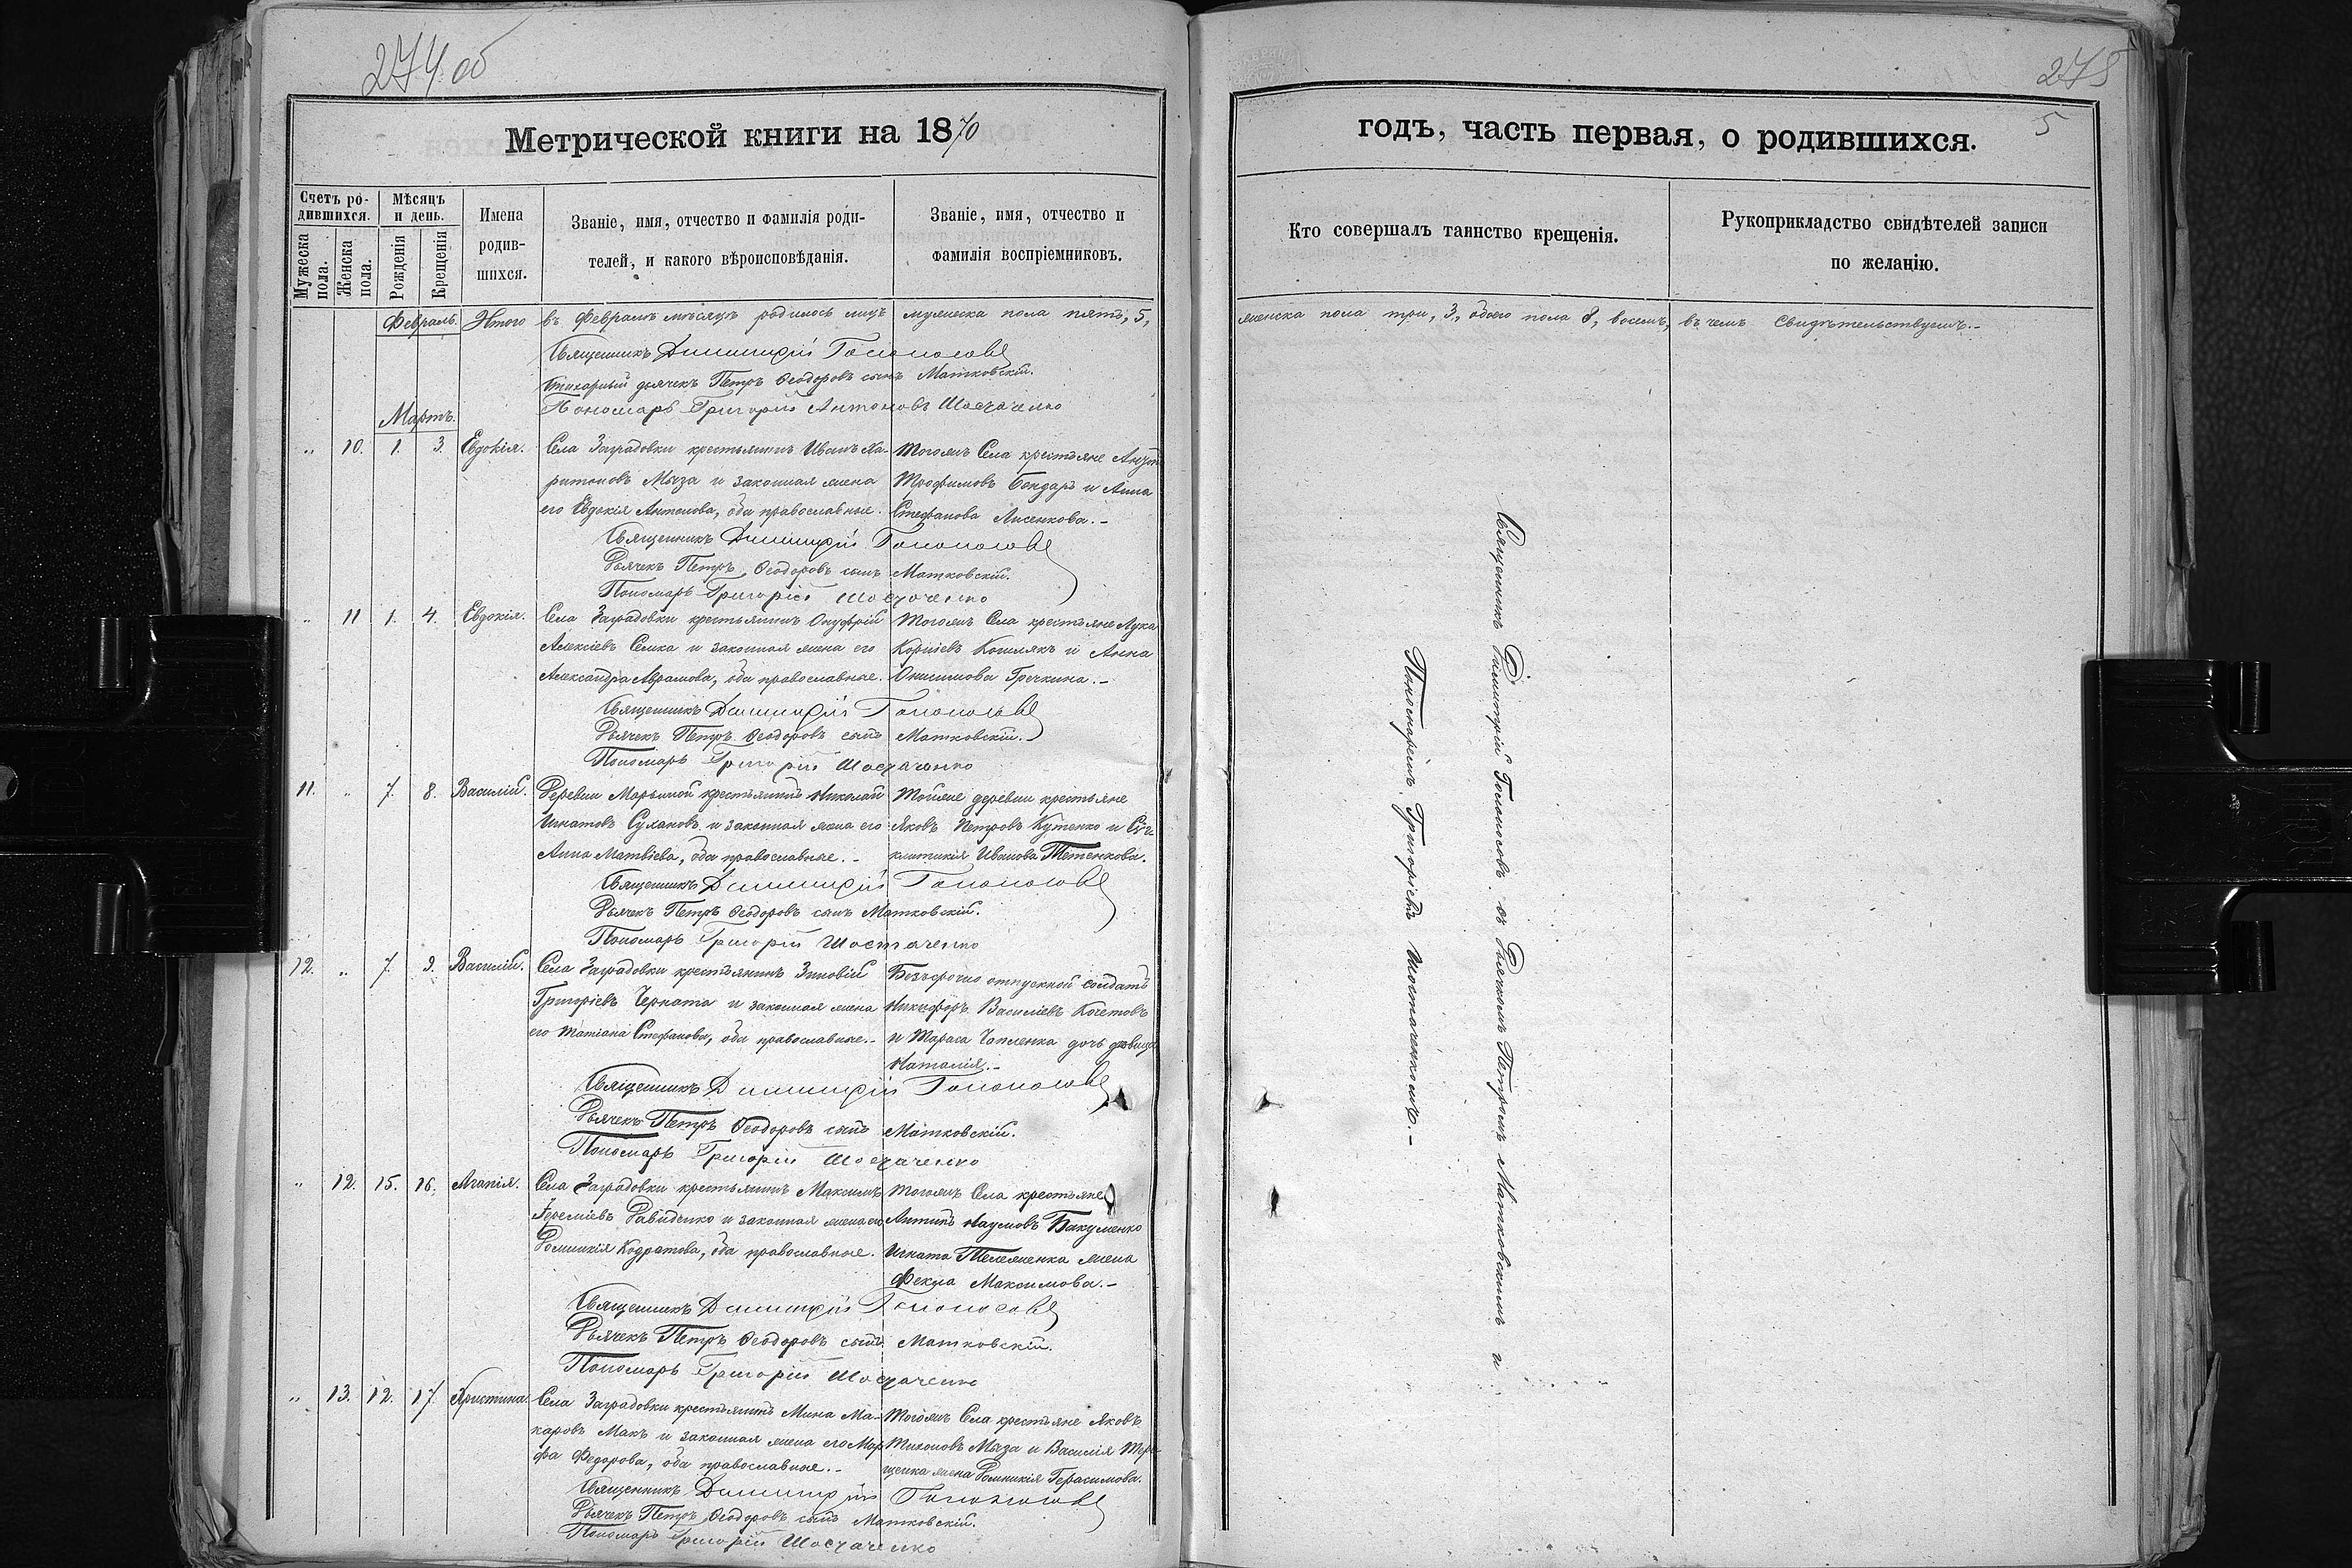 274 об
Метрической книги на 1870
Счетъ родившихся.
Мѣсяцъ и день.
Мужеска пола.
Женска пола.
Рожденія
Крещенія
Имена родившихся.
Званіе, имя, отчество и фамилія роди-
телей, и какого вѣроисповѣданія.
Званіе, имя, отчество и
фамилія воспріемниковъ.
Февраль. Итого въ Февралѣ мѣсяцѣ родилось лицъ мужеска пола пять, 5,
Священникъ Димитрій Голоносовъ
Стихарный дьячекъ Петръ Ѳеодоровъ сынъ Матковскій.
Пономарь Григорій Антоновъ Шостаченко
Мартъ.
„ 10. 1. 3. Евдокія. Села Заградовки крестьянинъ Иванъ Ха-
ритоновъ Мыза и законная жена
его Евдокія Антонова, оба православные.
Тогожъ Села крестьяне Антонъ
Трофимовъ Бондарь и Анна
Стефанова Лисенкова. -
Священникъ Димитрій Голоносовъ
Дьячекъ Петръ Ѳеодоровъ сынъ Матковскій.
Пономарь Григорій Шостаченко
„ 11 1. 4. Евдокія. Села Заградовки крестьянинъ Онуфрій
Алексіевъ Семка и законная жена его
Александра Аврамова, оба православные.
Тогожъ Села крестьяне Лука
Корніевъ Кошлякъ и Анна
Онисимова Гречкина. -
Священникъ Димитрій Голоносовъ
Дьячекъ Петръ Ѳеодоровъ сынъ Матковскій.
Пономарь Григорій Шостаченко
11. „ 7. 8. Василій. Деревни Марьиной крестьянинъ Николай
Игнатовъ Сухановъ и законная жена его
Анна Матвіева, оба православные. -
Тойже деревни крестьяне
Яковъ Петровъ Кутенко и
Иванова Тетенкова.
Священникъ Димитрій Голоносовъ
Дьячекъ Петръ Ѳеодоровъ сынъ Матковскій.
Пономарь Григорій Шостаченко
12. „ 7. 9. Василій. Села Заградовки крестьянинъ Зиновій
Григоріевъ Черната и законная жена
его Татіана Стефанова, оба православные. -
Безсрочно отпускной солдатъ
Никифоръ Василіевъ Кочетовъ
и Тараса Чапленка дочь дѣвица
Наталія. -
Священникъ Димитрій Голоносовъ
Дьячекъ Петръ Ѳеодоровъ сынъ Матковскій.
Пономарь Григорій Шостаченко
„ 12. 15. 16. Агапія. Села Заградовки крестьянинъ Максимъ
Іереміевъ Давиденко и законная жена его
Домникія Кодратова, оба православные.
Тогожъ Села крестьяне
Антипъ Наумовъ Бакуменко
Игната Тележенка жена
Фекла Максимова. -
Священникъ Димитрій Голоносовъ
Дьячекъ Петръ Ѳеодоровъ сынъ Матковскій.
Пономарь Григорій Шостаченко
„ 13. 12. 17. Христина. Села Заградовки крестьянинъ Мина Ма-
каровъ Макъ и законная жена его Мар-
фа Федорова, оба православные. -
Тогожъ Села крестьяне Яковъ
Тихоновъ Мыза и Василія Тере-
щенка жена Домникія Герасимова.
Священникъ Димитрій Голоносовъ
Дьячекъ Петръ Ѳеодоровъ сынъ Матковскій.
Пономарь Григорій Шостаченко
275
5
годъ, часть первая, о родившихся.
Кто совершалъ таинство крещенія.
Рукоприкладство свидѣтелей записи
по желанію.
женска пола три, 3, обоего пола 8, восемь, въ чемъ Свидѣтельствуемъ. -
Священникъ Димитрій Голоносовъ съ Дьячкомъ Петромъ Матковскимъ и
Пономаремъ Григоріемъ Шостаченкомъ. -